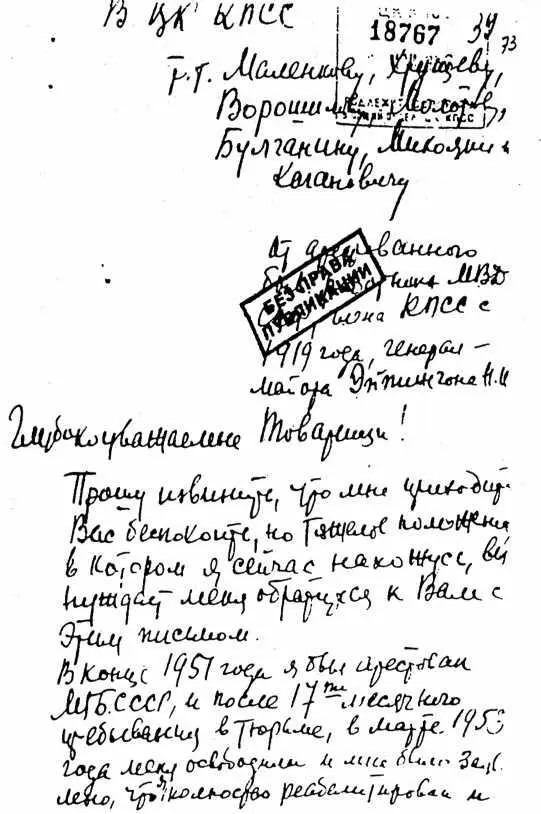 В ЦК КПСС
18767
39
73
т.т. Маленкову, Хрущеву,
Ворошилову, Молотову,
Булганину, Микояну и
Кагановичу
от арестованного
МВД
члена КПСС с
1919 года, генерал-
майора Эйтингона Н.И
БЕЗ ПРАВА
ПУБЛИКАЦИИ
Глубокоуважаемые Товарищи!
Прошу извинить, что мне приходит
Вас беспокоить, но тяжелое положение
в котором я сейчас нахожусь, вы
нуждает меня обратиться к Вам с
Этим письмом.
В конце 1951 года я был арестован
МГБ СССР, и после 17ти месячного
пребывания в тюрьме, в марте 1953
года меня освободили и мне было заяв
лено, что я полностью реабилитирован и